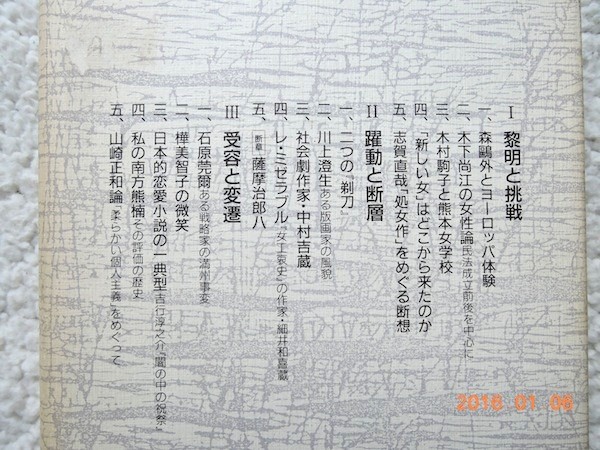 Ⅰ 黎明と挑戦
一、森鷗外とヨーロッパ体験
二、木下尚江の女性論 民法成立前後を中心に
三、木村駒子と熊本女学校
四、「新しい女」はどこから来たのか
五、志賀直哉『処女作』をめぐる断想
Ⅱ 躍動と断層
一、二つの『剃刀』
二、川上澄生 ある版画家の風貌
三、社会劇作家・中村吉蔵
四、レ・ミゼラブル 『女工哀史』の作家・細井和喜蔵
五、断章 薩摩治郎八
Ⅲ 受容と変遷
一、石原莞爾 ある戦略家の満州事変
二、樺美智子の微笑
三、日本的恋愛小説の一典型 吉行淳之介『闇の中の祝祭』
四、私の南方熊楠 その評価の歴史
五、山崎正和論 『柔らかい個人主義』をめぐって
2016 01 06